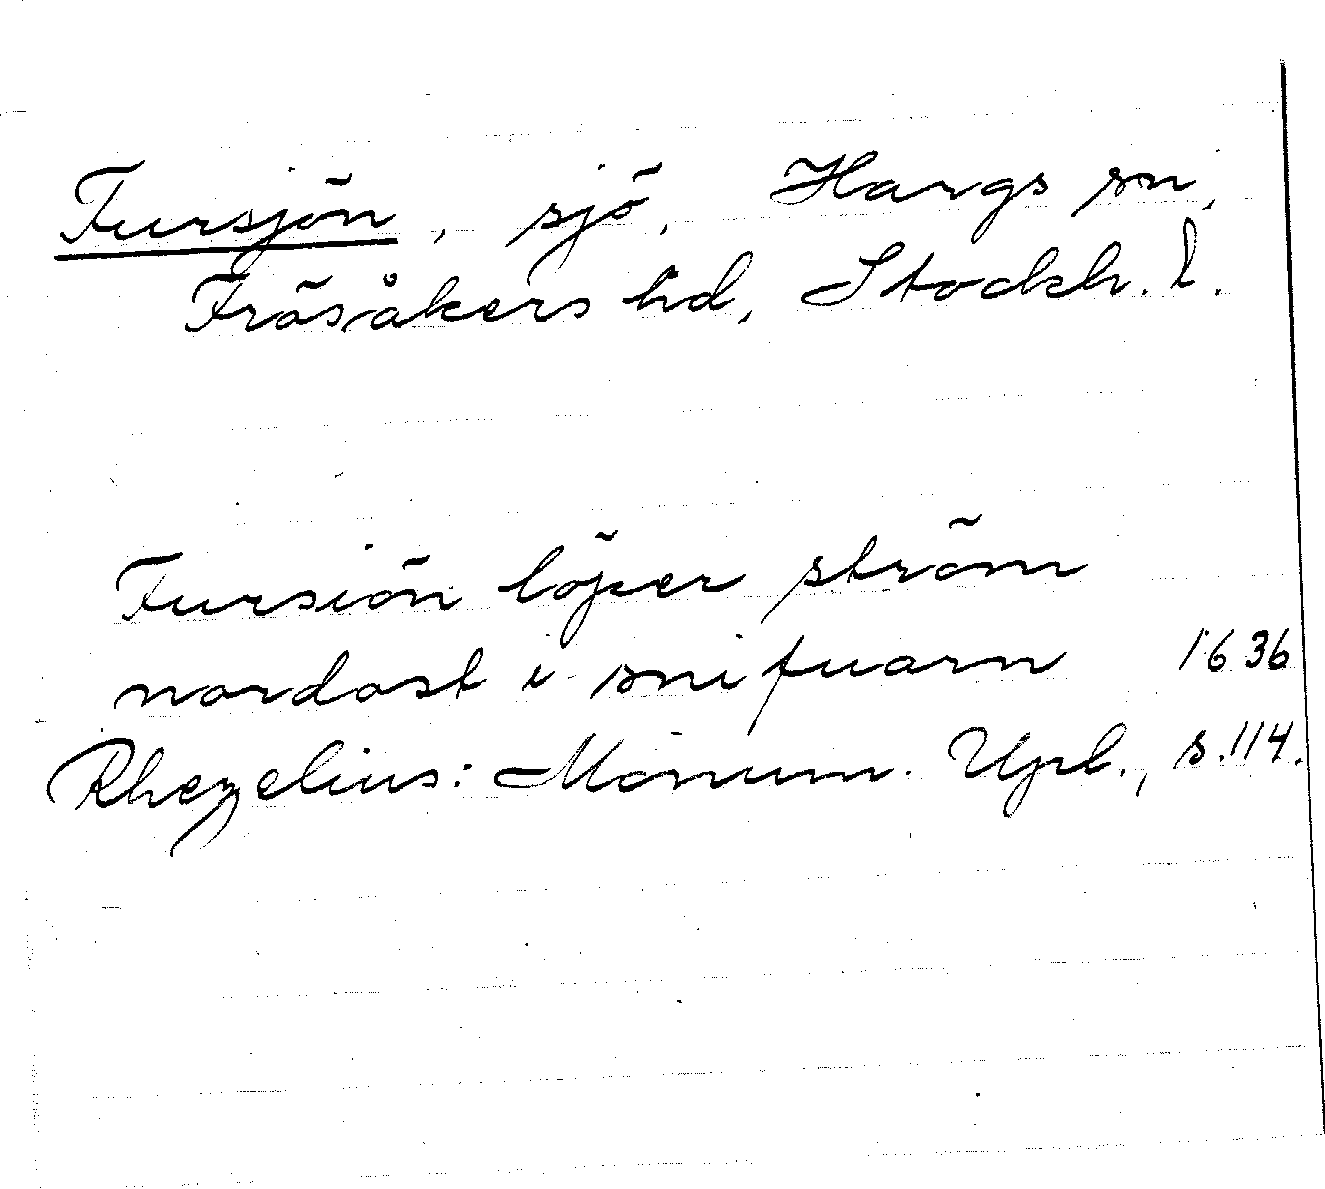 Fursjön, sjö, Hargs sn,
Frösåkers hd, Stockh. l.
Fursiön löper ström
nordost i snifuarn 1636
Rhezelius: Monum. Upl., s. 114.